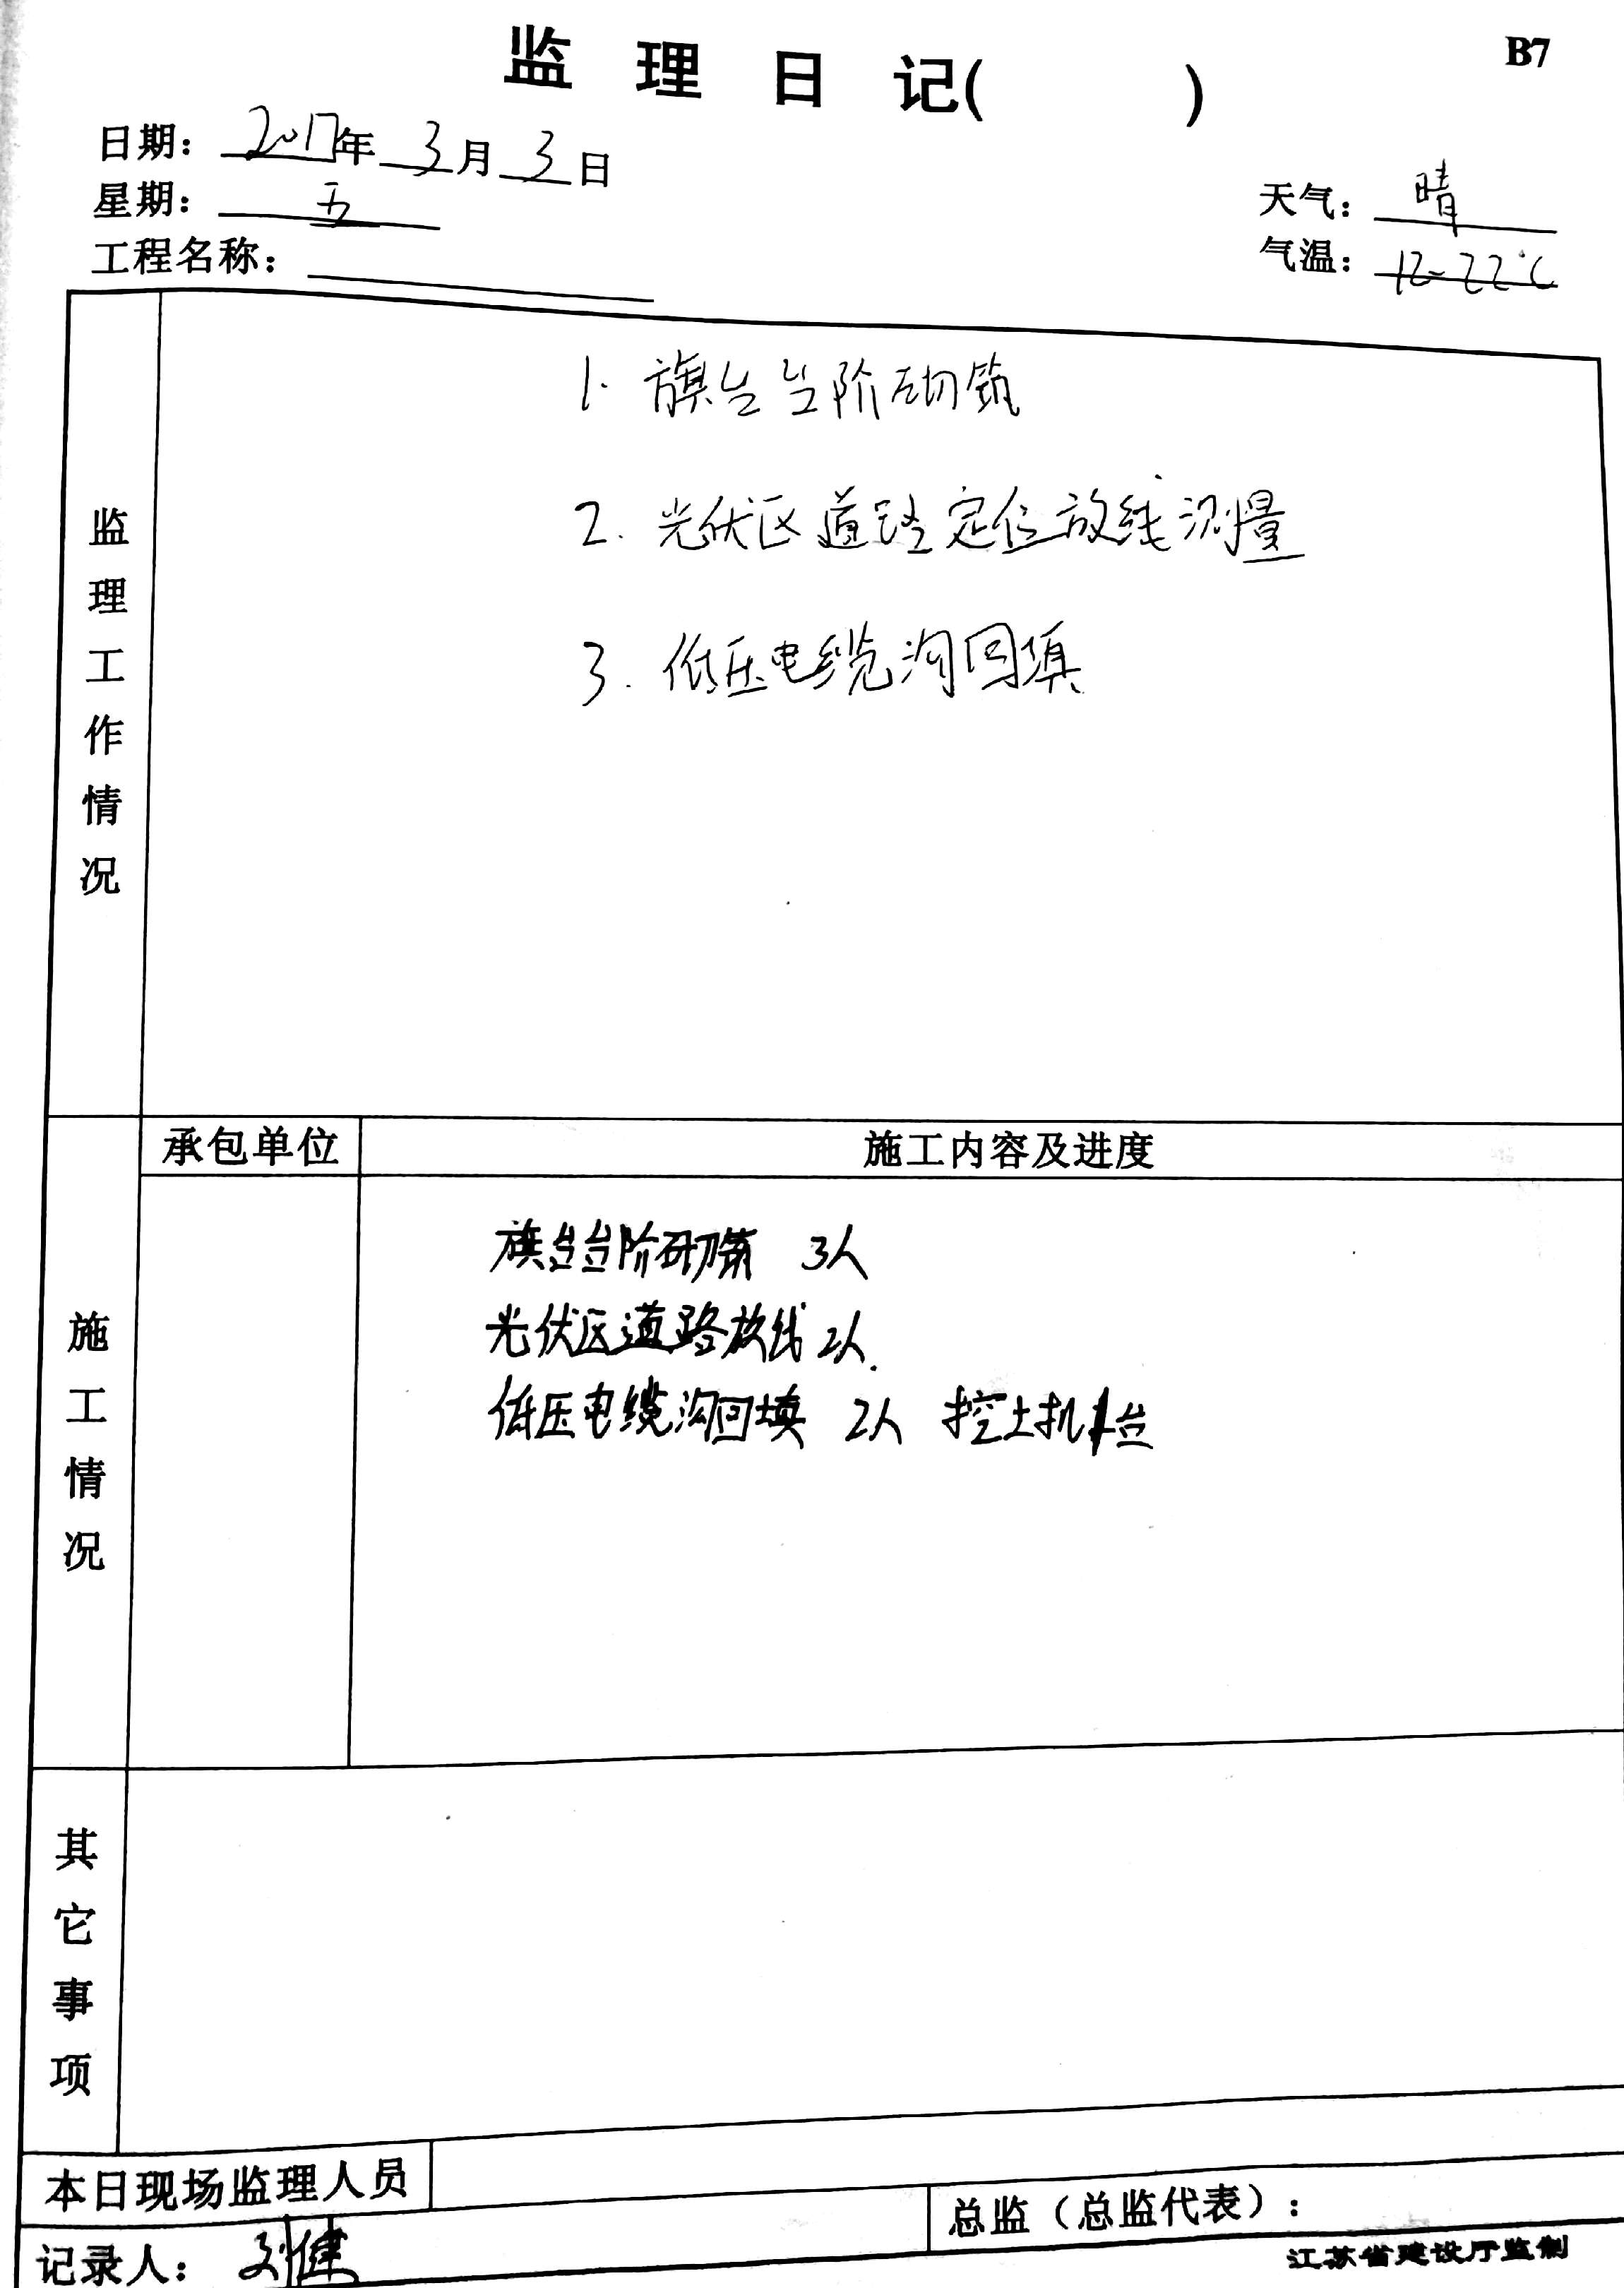 B7
监理日记(　　)
日期：2017年3月3日
星期：五
天气：晴
工程名称：
气温：12~22℃
监理工作情况
1. 旗台台阶砌筑
2. 光伏区道路定位放线测量
3. 低压电缆沟回填
承包单位 施工内容及进度
施工情况
旗台台阶砌筑 3人
光伏区道路放线 2人.
低压电缆沟回填 2人 挖土机1台
其它事项
本日现场监理人员
总监（总监代表）：
记录人：刘健
江苏省建设厅监制